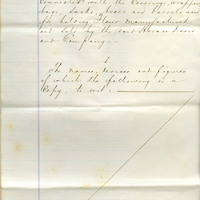 connected with the Coverings, Wrappers
bags, sacks, boxes and Parcels used
for holding Flour manufactured
and sold by the said
and Company:—
I.
The names, devices and figures
of which the following is a
Copy. to wit: